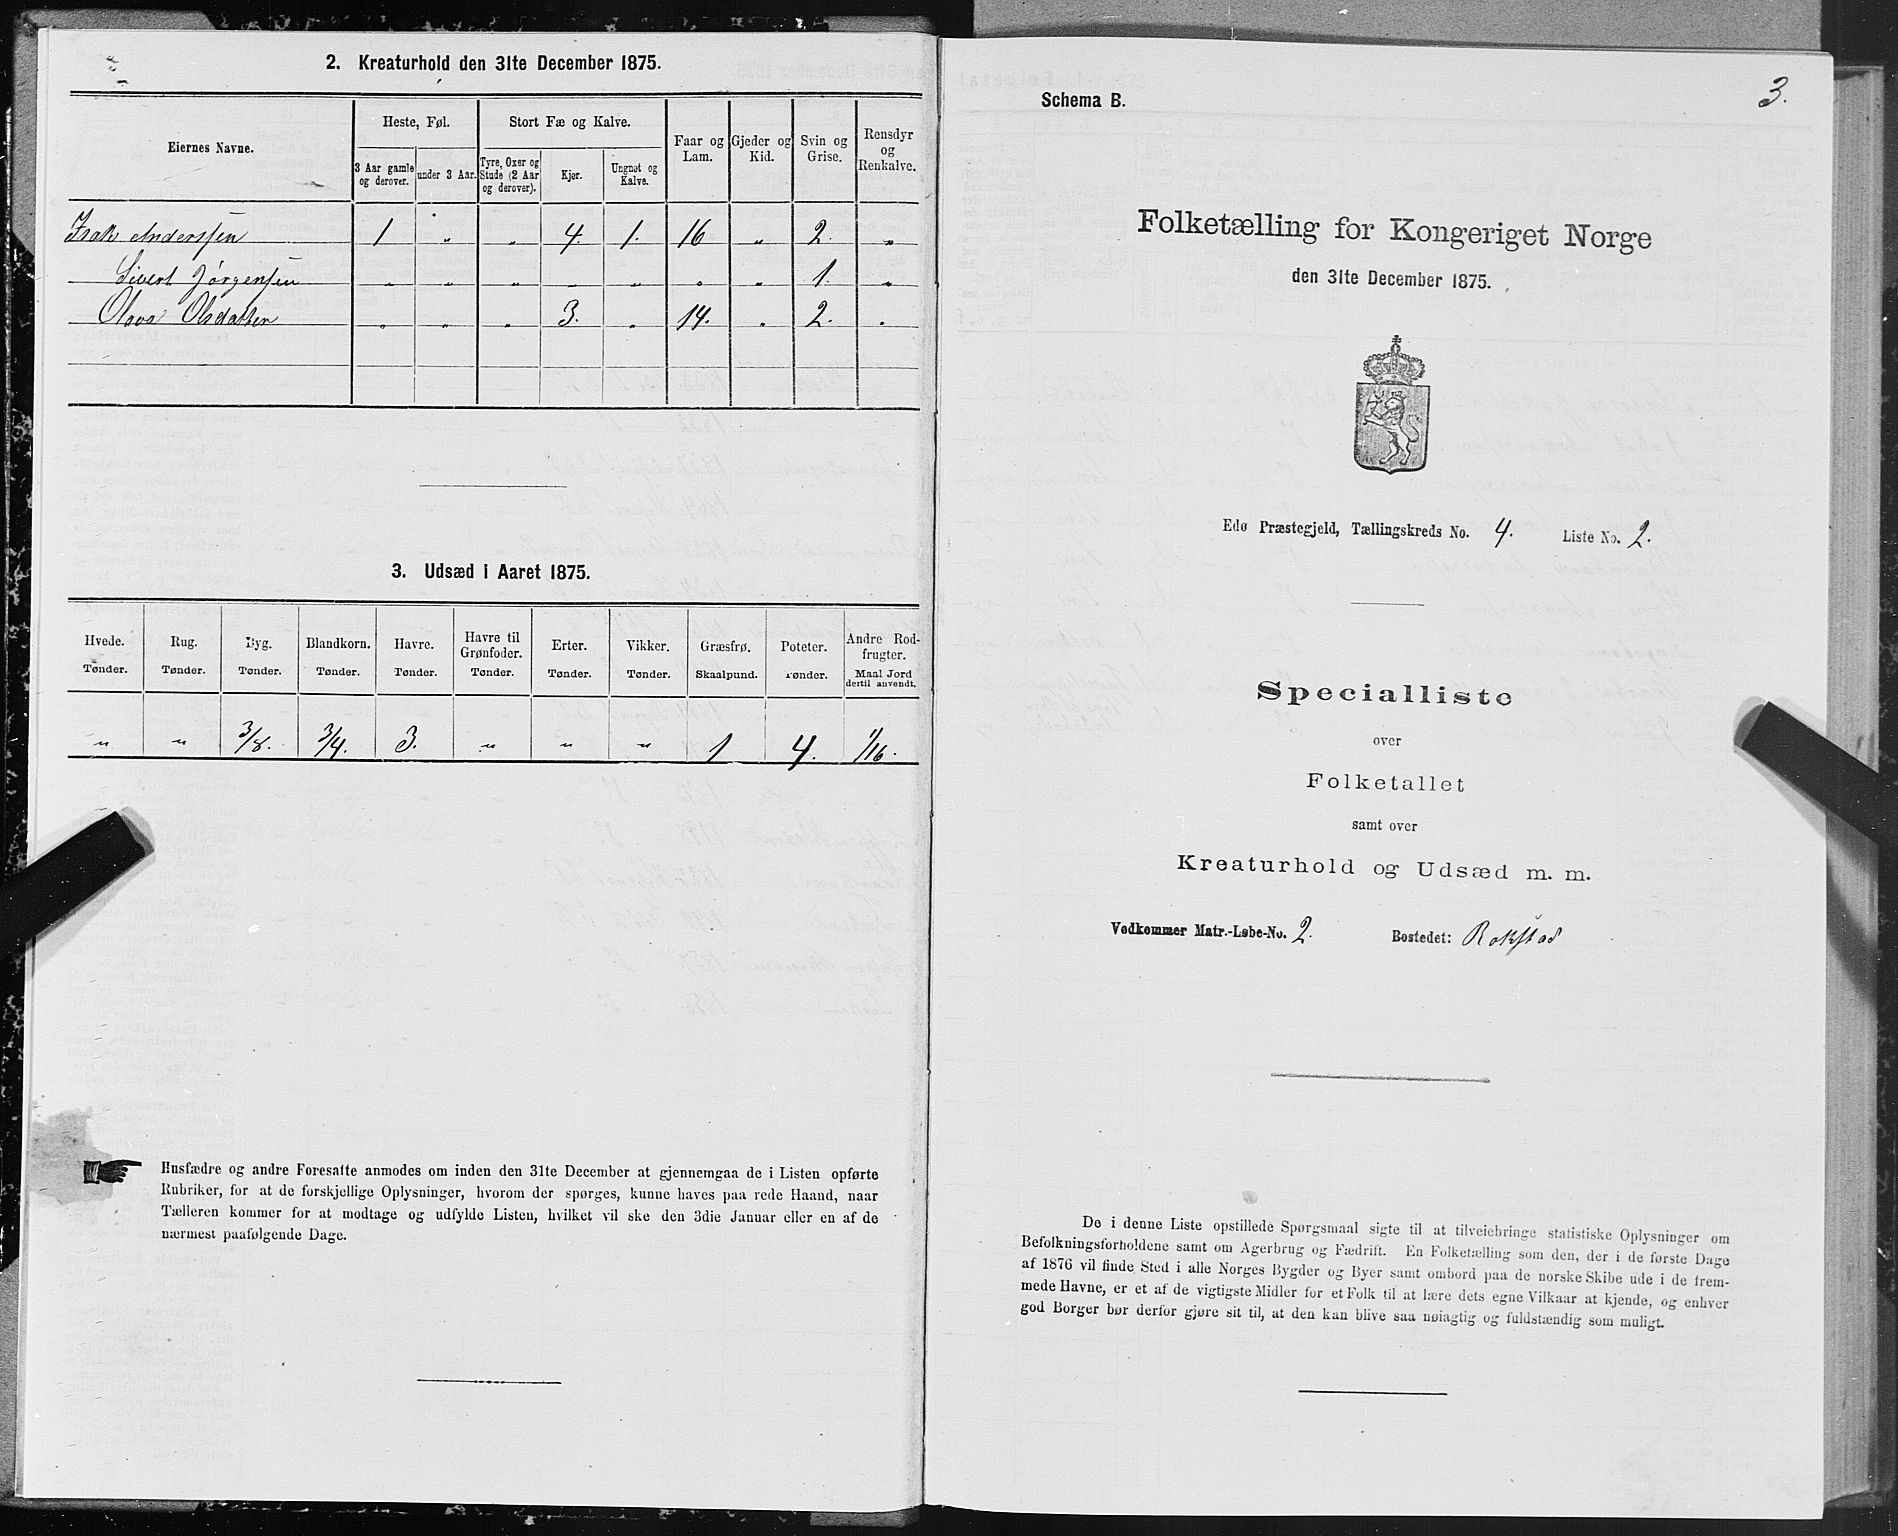 2. Kreaturhold den 31te December 1875.
Eiernes Navne.
Heste, Føl.
Stort Fæ og Kalve.
Faar og Lam.
Gjeder og Kid.
Svin og Grise.
Rensdyr og Renkalve.
3 Aar gamle og derover.
under 3 Aar.
Tyre, Oxer og Stude (2 Aar og derover).
Kjør.
Ungnøt og Kalve.
Isak Anderssen 1 „ „ 4. 1. 16 „ 2. „
Sivert Jørgensen „ „ „ „ „ „ „ 1. „
Olava Olsdatter „ „ „ 3. „ 14. „ 2. „
3. Udsæd i Aaret 1875.
Hvede. Rug. Byg. Blandkorn. Havre. Havre til Grønfoder. Erter. Vikker. Græsfrø. Poteter. Andre Rodfrugter.
Tønder. Tønder. Tønder. Tønder. Tønder. Tønder. Tønder. Tønder. Skaalpund. Tønder. Maal Jord dertil anvendt.
„ „ 3/8. 3/4. 3. „ „ „ 1 4. 1/16.
Husfædre og andre Foresatte anmodes om inden den 31te December at gjennemgaa de i Listen opførte
Rubriker, for at de forskjellige Oplysninger, hvorom der spørges, kunne haves paa rede Haand, naar
Tælleren kommer for at modtage og udfylde Listen, hvilket vil ske den 3die Januar eller en af de
nærmest paafølgende Dage.
Schema B.
3.
Folketælling for Kongeriget Norge
den 31te December 1875.
Edø Præstegjeld, Tællingskreds No. 4. Liste No. 2.
Specialliste
over
Folketallet
samt over
Kreaturhold og Udsæd m. m.
Vedkommer Matr.-Løbe-No. 2. Bostedet: Rokstad
De i denne Liste opstillede Spørgsmaal sigte til at tilveiebringe statistiske Oplysninger om
Befolkningsforholdene samt om Agerbrug og Fædrift. En Folketælling som den, der i de første Dage
af 1876 vil finde Sted i alle Norges Bygder og Byer samt ombord paa de norske Skibe ude i de frem-
mede Havne, er et af de vigtigste Midler for et Folk til at lære dets egne Vilkaar at kjende, og enhver
god Borger bør derfor gjøre sit til, at den kan blive saa nøiagtig og fuldstændig som muligt.